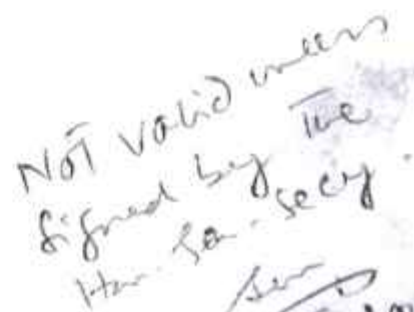 NOT valid unless
signed by the
Hon. Gen. Secy.